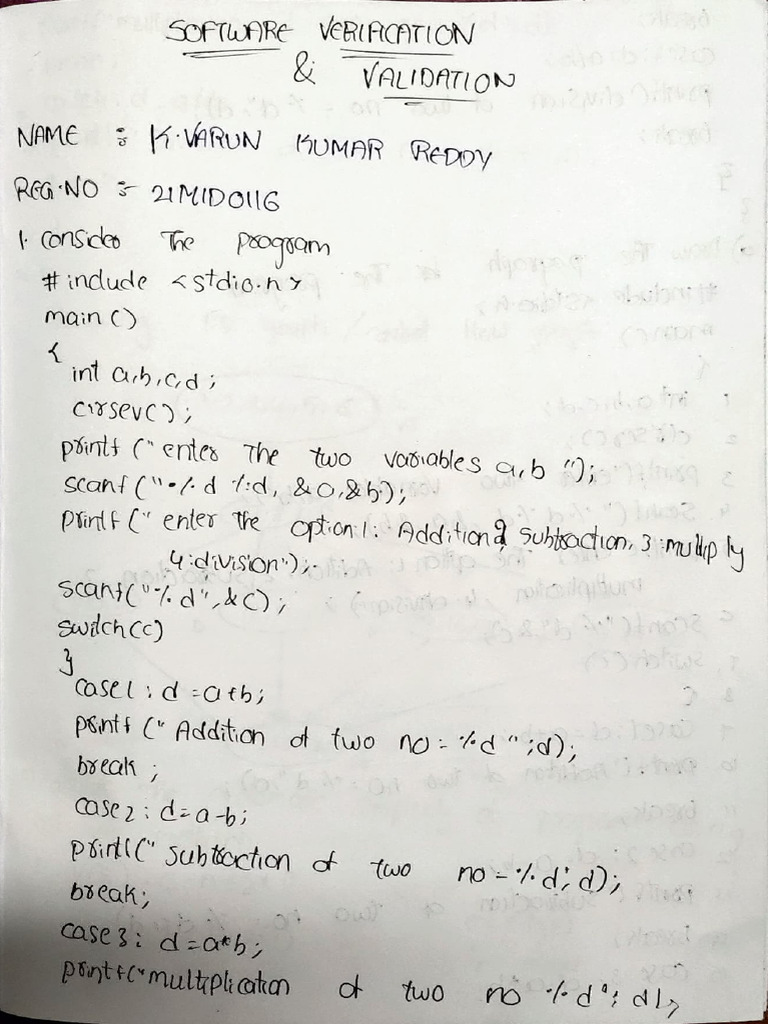 SOFTWARE VERIFICATION
& VALIDATION
NAME : K.VARUN KUMAR REDDY
REG.NO :- 21MID0116
1. consider The program
#include <stdio.h>
main()
{
int a,b,c,d;
clrscr();
printf ("enter The two variables a,b ");
scanf ("%d %d, &a,&b);
printf ("enter the option 1: Addition 2 subtraction, 3:multiply
4:division");
scanf("%d",&c);
switch(c)
}
case1: d=a+b;
printf ("Addition of two no=%d";d);
break;
case2: d=a-b;
printf(" subtraction of two no=%d; d);
break;
case3: d=a*b;
printf("multiplication of two no %d"; d);